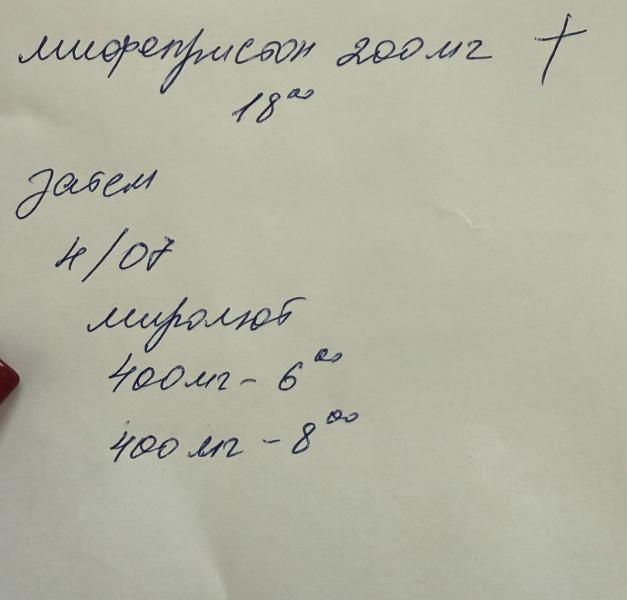 мифепристон 200 мг +
18⁰⁰
затем
4/07
миролют
400 мг - 6⁰⁰
400 мг - 8⁰⁰